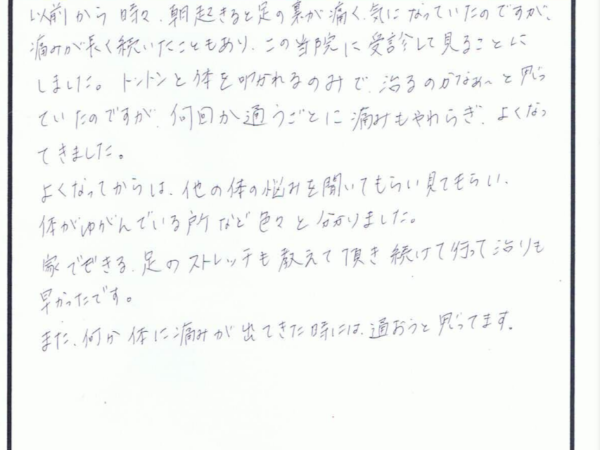 以前から時々、朝起きると足の裏が痛く、気になっていたのですが、
痛みが長く続いたこともあり、この当院に受診して見ることに
しました。トントンと体を叩かれるのみで、治るのかなぁ〜と思っ
ていたのですが、何回か通うごとに痛みもやわらぎ、よくなっ
てきました。
よくなってからは、他の体の悩みを聞いてもらい見てもらい、
体がゆがんでいる所など色々と分かりました。
家でできる、足のストレッチも教えて頂き続けて行って治りも
早かったです。
また、何か体に痛みが出てきた時には、通おうと思ってます。